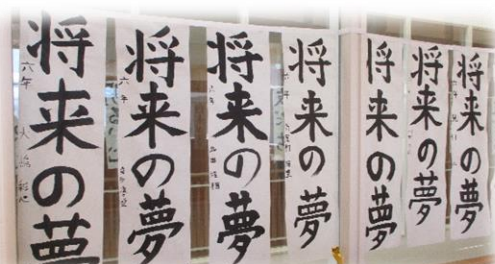 将来の夢
六年
将来の夢
六年
将来の夢
将来の夢
将来の夢
将来の夢
将来の夢